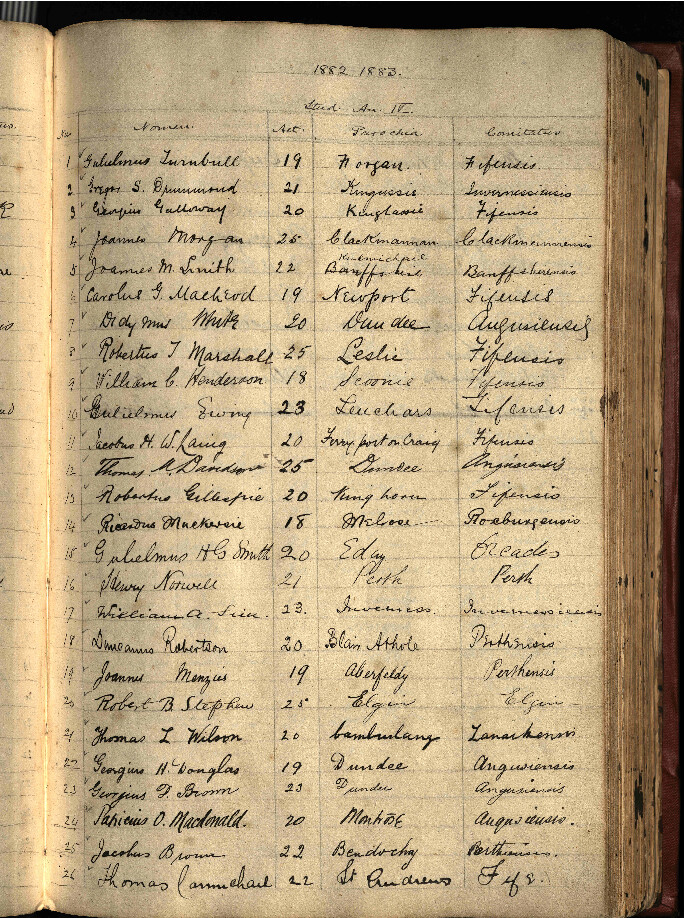 1882 1883.
Stud. An. IV.
Nos Nomen. Aet. Parochia Comitatus
1 Gulielmus Turnbull 19 Forgan. Fifensis.
2 Gregor S. Drummond 21 Kingussie Invernessiensis
3 Georgius Galloway 20 Kinglassie Fifensis
4 Joannes Morgan 25 Clackmannan Clackmannensis
Kirkmichael
5 Joannes M. Smith 22 Banffshire Banffshirensis
6 Carolus G. Macleod 19 Newport Fifensis
7 Didymus White 20 Dundee Angusiensis
8 Robertus T Marshall 25 Leslie Fifensis
9 William C. Henderson 18 Scoonie Fifensis
10 Gulielmus Ewing 23 Leuchars Fifensis
11 Jacobus H. W. Laing 20 Ferryport on Craig Fifensis
12 Thomas A. Davidson 25 Dundee Angusiensis
13 Robertus Gillespie 20 Kinghorn Fifensis
14 Ricardus Mackersie 18 Melrose Roxburgensis
15 Gulielmus H G Smith 20 Eday Orcades
16 Henry Norwell 21 Perth Perth
17 William A. Sim. 23. Inverness. Invernessiensis
18 Duncanus Robertson 20 Blair Athole Perthensis
19 Joannes Menzies 19 Aberfeldy Perthensis
20 Robert B. Stephen 25 Elgin Elgin
21 Thomas L Wilson 20 Cambuslang Lanarkensis
22 Georgius H. Douglas 19 Dundee Angusiensis
23 Georgius F. Brown 23 Dundee Angusiensis
24 Patricius O. Macdonald. 20 Montrose Angusiensis.
25 Jacobus Brown 22 Bendochy Perthensis.
26 Thomas Carmichael 22 St Andrews Fife.